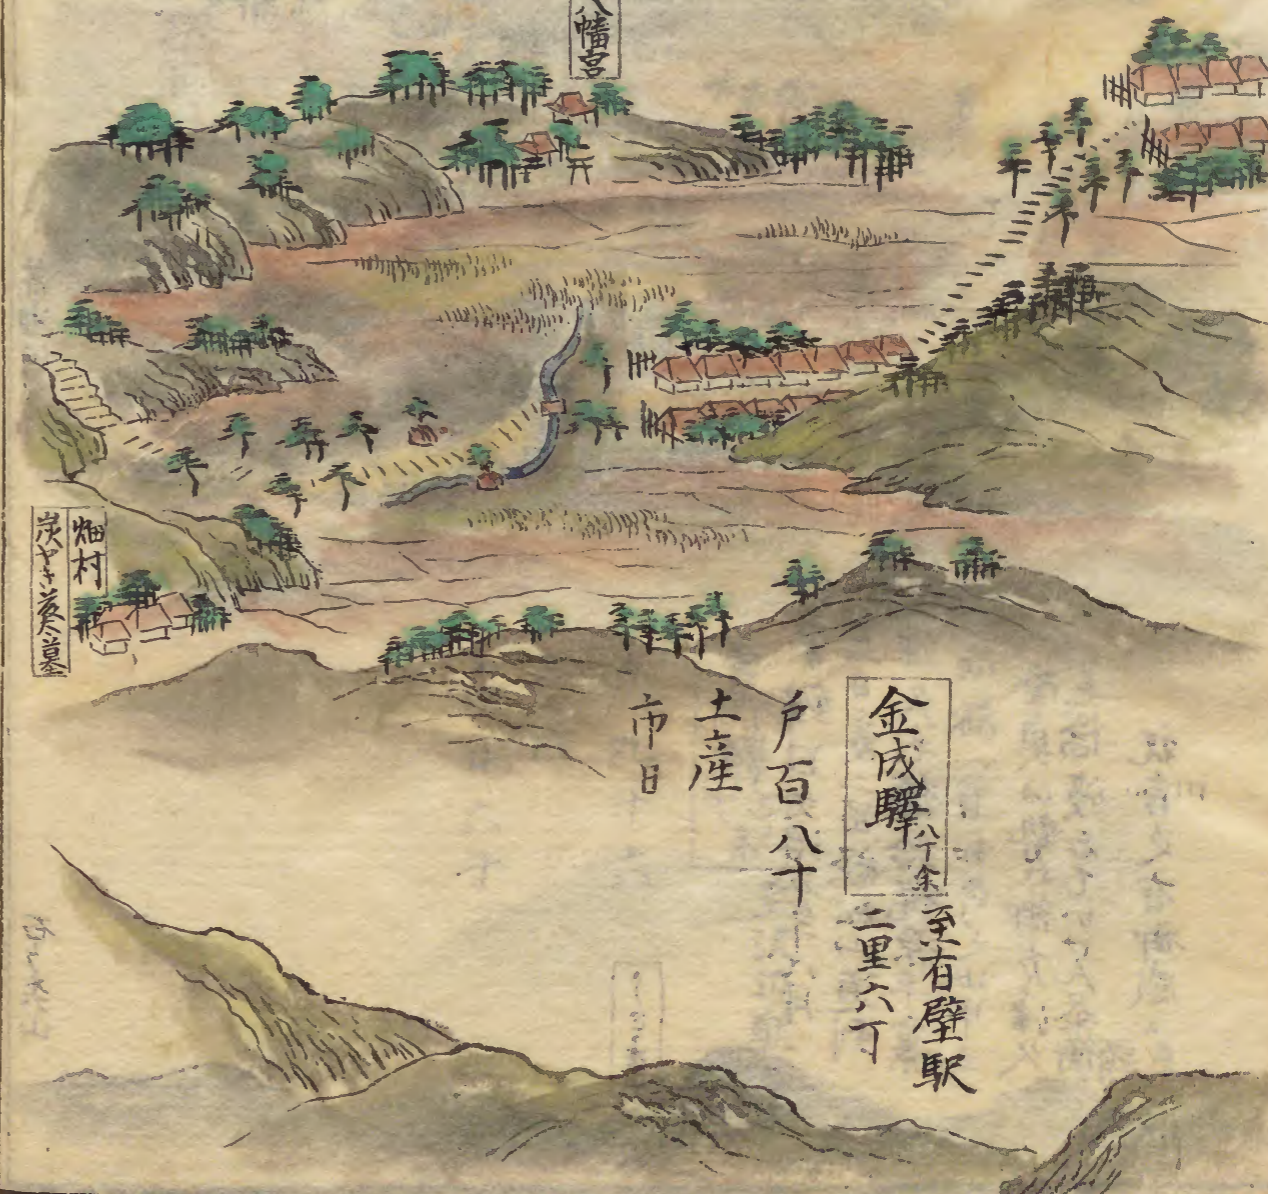 八幡宮
金成驛 八丁余
至有壁駅
二里六丁
戸百八十
土産
市日
畑村
炭やき藤太墓